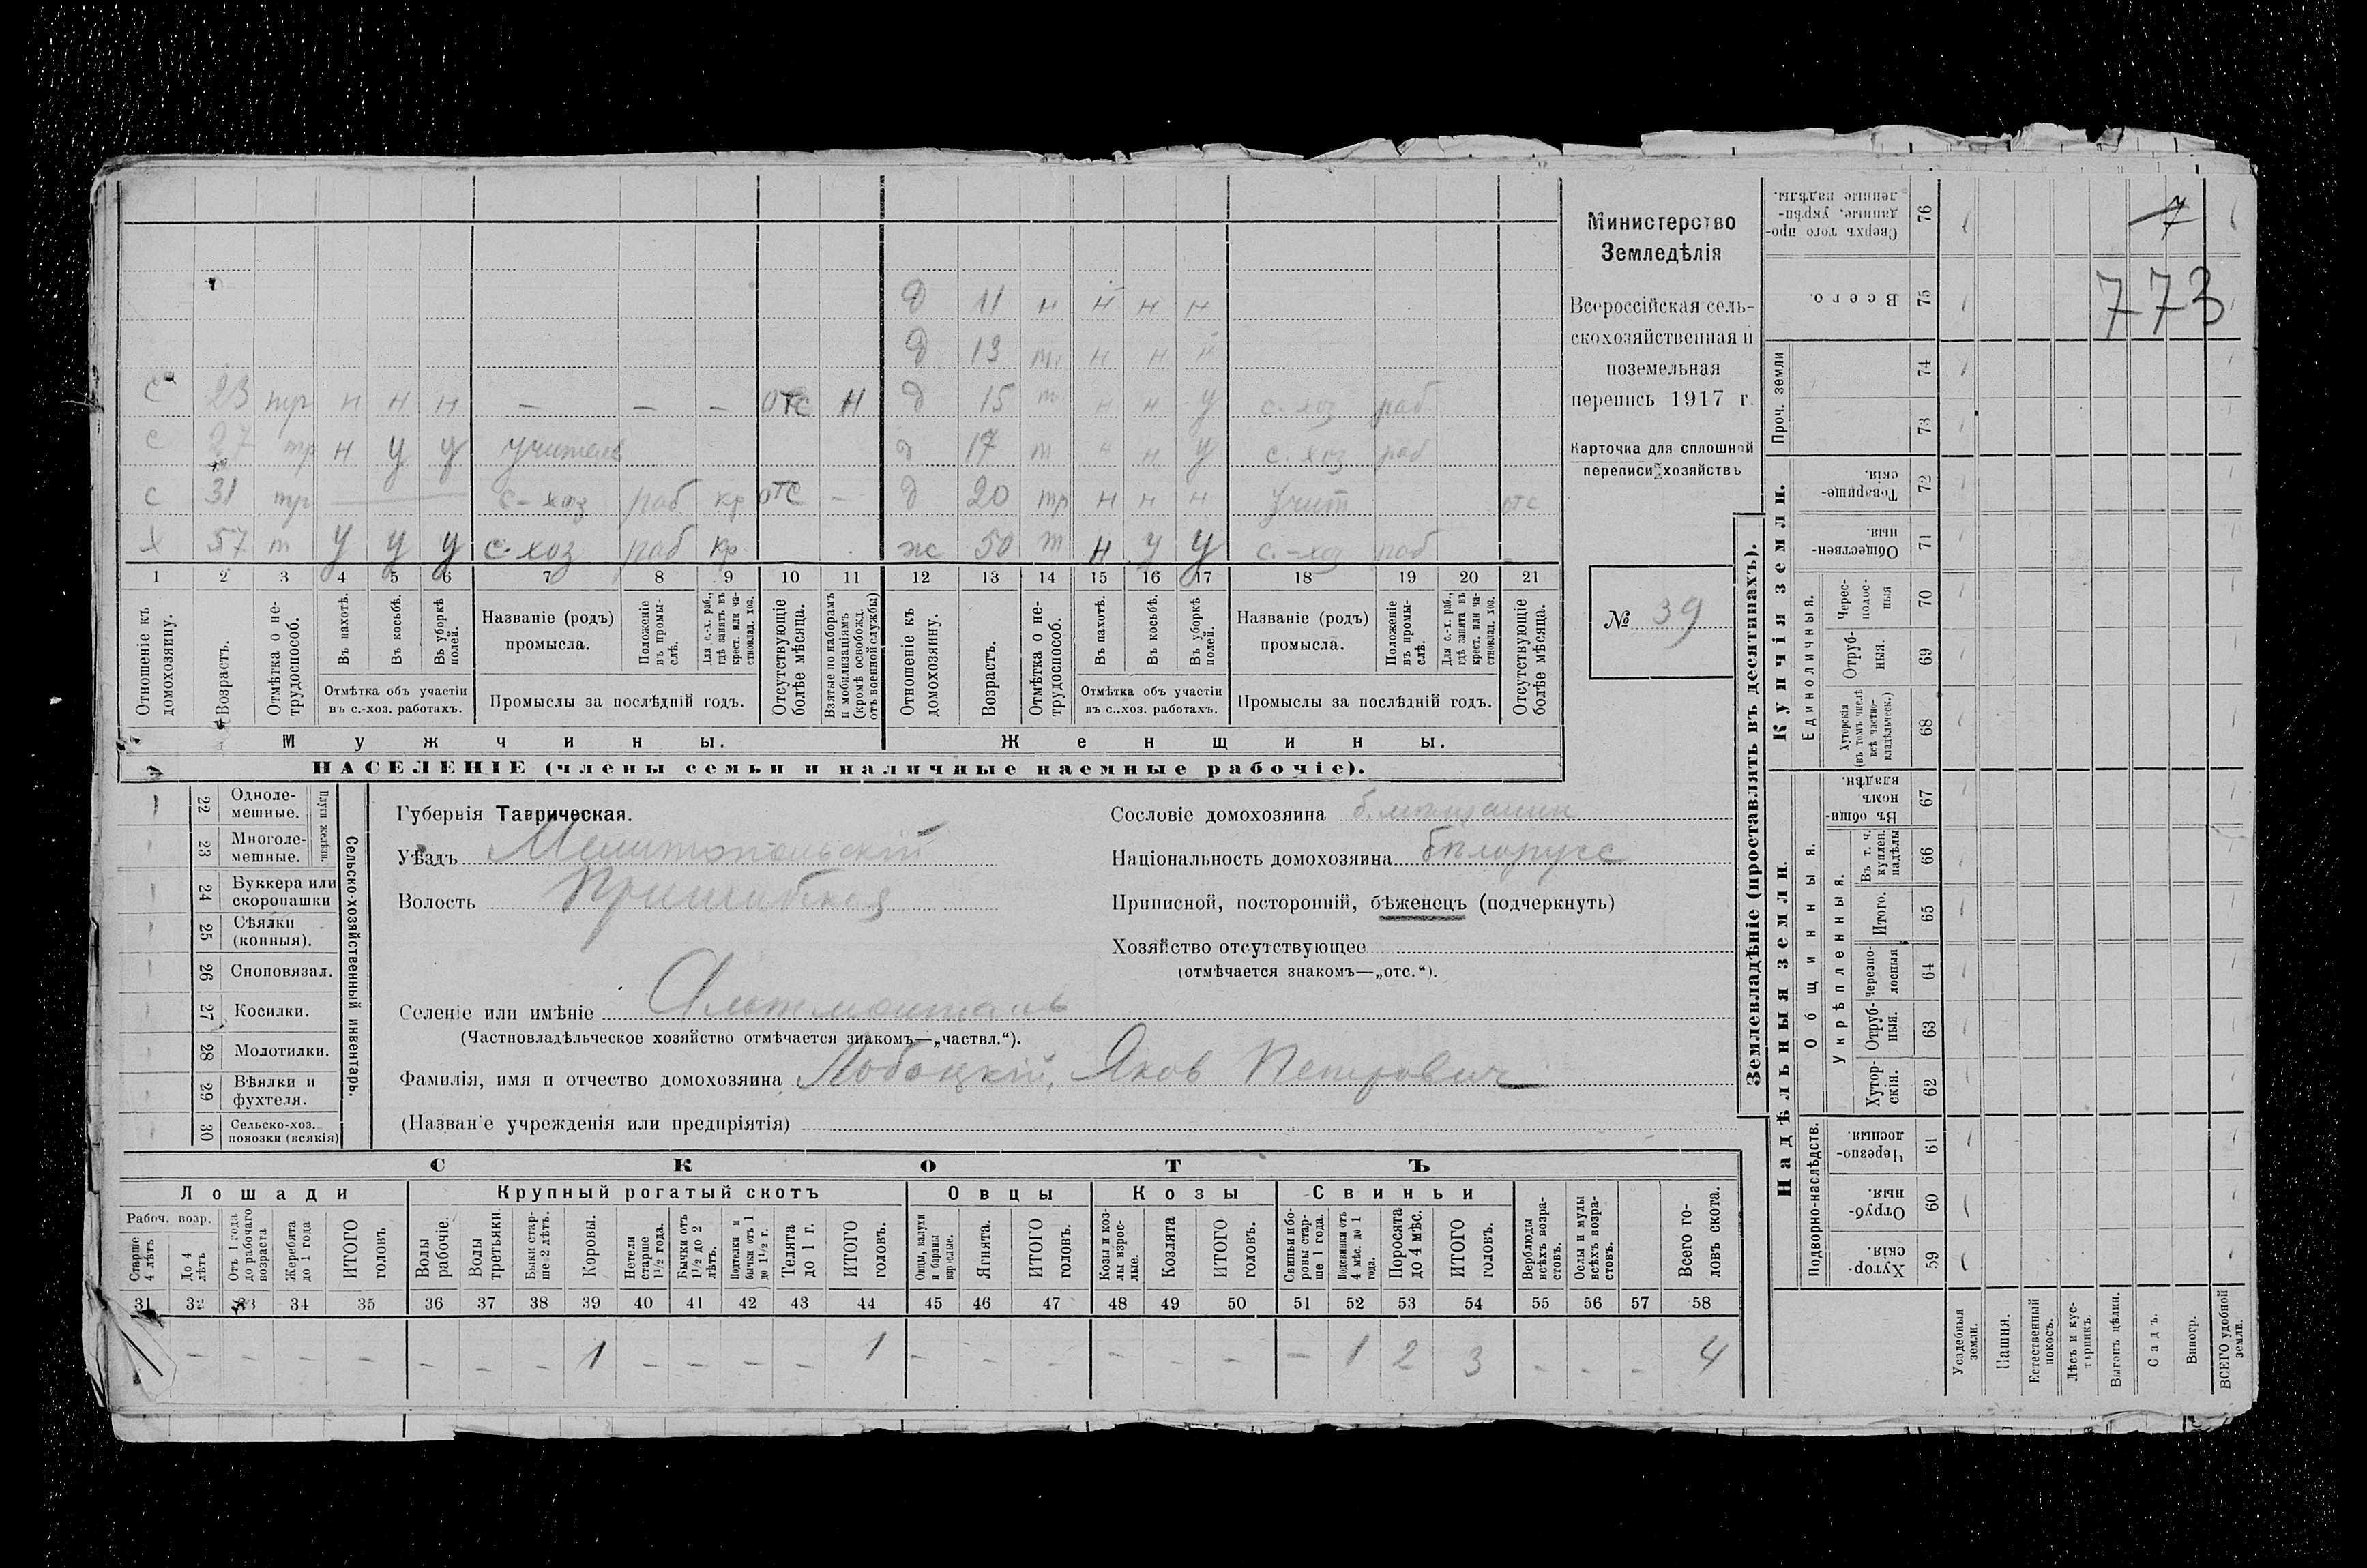 д 11 н н н н
д 13 т. н н н
с 23 тр н н н — — — отс н д 15 т н н у с.-хоз раб
с 27 тр н у у учитель д 17 т н н у с.-хоз раб
с 31 тр с-хоз раб кр отс — д 20 тр н н н учит отс
х 57 т у у у с.-хоз раб кр. ж 50 т н у у с.-хоз раб
1 2 3 4 5 6 7 8 9 10 11 12 13 14 15 16 17 18 19 20 21
Отношеніе къ домохозяину.
Возрастъ.
Отмѣтка о не-трудоспособ.
Въ пахотѣ.
Въ косьбѣ.
Въ уборкѣ полей.
Отмѣтка объ участіи
въ с.-хоз. работахъ.
Названіе (родъ)
промысла.
Положеніе въ промы-слѣ.
Для с.-х. раб., гдѣ занятъ въ крест. или ча-стновлад. хоз.
Промыслы за послѣдній годъ.
Отсутствующіе болѣе мѣсяца.
Взятые по наборамъ и мобилизаціямъ (кромѣ освобожд. отъ военной службы)
Отношеніе къ домохозяину.
Возрастъ.
Отмѣтка о не-трудоспособ.
Въ пахотѣ.
Въ косьбѣ.
Въ уборкѣ полей.
Отмѣтка объ участіи
въ с..хоз. работахъ.
Названіе (родъ)
промысла.
Положеніе въ промы-слѣ.
Для с.-х. раб., гдѣ занята въ крест. или ча-стновлад. хоз.
Промыслы за послѣдній годъ.
Отсутствующіе болѣе мѣсяца.
Мужчины. Женщины.
НАСЕЛЕНІЕ (члены семьи и наличные наемные рабочіе).
Министерство
Земледѣлія
Всероссійская сель-
скохозяйственная и
поземельная
перепись 1917 г.
Карточка для сплошной
переписи хозяйствъ
№ 39
22 Одноле-мешные.
23 Многоле-мешные.
Плуги желѣзн.
24 Буккера или скоропашки
25 Сѣялки (конныя).
26 Сноповязал.
27 Косилки.
28 Молотилки.
29 Вѣялки и фухтеля.
30 Сельско-хоз. повозки (всякія)
Сельско-хозяйственный инвентарь.
Губернія Таврическая.
Уѣздъ Мелитопольскій
Волость Пришибская
Селеніе или имѣніе Альтмонталь
(Частновладѣльческое хозяйство отмѣчается знакомъ—„частвл.“).
Фамилія, имя и отчество домохозяина Лобацкій, Яков Петрович
(Названіе учрежденія или предпріятія)
Сословіе домохозяина б. мѣщанин
Національность домохозяина бѣлорусс
Приписной, посторонній, бѣженецъ (подчеркнуть)
Хозяйство отсутствующее
(отмѣчается знакомъ—„отс.“).
СКОТЪ
Лошади Крупный рогатый скотъ Овцы Козы Свиньи
Рабоч. возр.
Старше 4 лѣтъ
До 4 лѣтъ
Отъ 1 года до рабочаго возраста
Жеребята до 1 года
ИТОГО головъ
Волы рабочіе.
Волы третьяки.
Быки стар-ше 2 лѣтъ.
Коровы.
Нетели старше 1½ года.
Бычки отъ 1½ до 2 лѣтъ.
Подтелки и бычки отъ 1 до 1½ г.
Телята до 1 г.
ИТОГО головъ.
Овцы, валухи и бараны взрослые.
Ягнята.
ИТОГО головъ.
Козы и коз-лы взрос-лые.
Козлята
ИТОГО головъ.
Свиньи и бо-ровы стар-ше 1 года.
Подсвинки отъ 4 мѣс. до 1 года.
Поросята до 4 мѣс.
ИТОГО головъ.
Верблюды всѣхъ возра-стовъ.
Ослы и мулы всѣхъ возра-стовъ.
Всего го-ловъ скота.
31 32 33 34 35 36 37 38 39 40 41 42 43 44 45 46 47 48 49 50 51 52 53 54 55 56 57 58
– – – – – – – 1 – – – – 1 – – – – – – – 1 2 3 – – – 4
Землевладѣніе (проставлять въ десятинахъ).
Надѣльныя земли. Купчія земли.
Подворно-наслѣдств. Общинныя. Укрѣпленныя. Единоличныя. Проч. земли
76 Сверхъ того про-данные, укрѣп-ленные надѣлы.
75 Всего.
74
73
72 Товарище-скія.
71 Обществен-ныя.
70 Черес-полос-ныя
69 Отруб-ныя.
68 Хуторскія (въ томъ числѣ всѣ частно-владѣльческ.)
67 Въ общин-номъ владѣн.
66 Въ т. ч. куплен. надѣлы
65 Итого.
64 Черезпо-лосныя
63 Отруб-ныя.
62 Хутор-скія.
61 Черезпо-лосныя
60 Отруб-ныя.
59 Хутор-скія.
Усадебныя земли.
Пашня.
Естественный покосъ.
Лѣсъ и кус-тарникъ.
Выгонъ цѣлин.
Садъ.
Виногр.
ВСЕГО удобной земли.
7
773